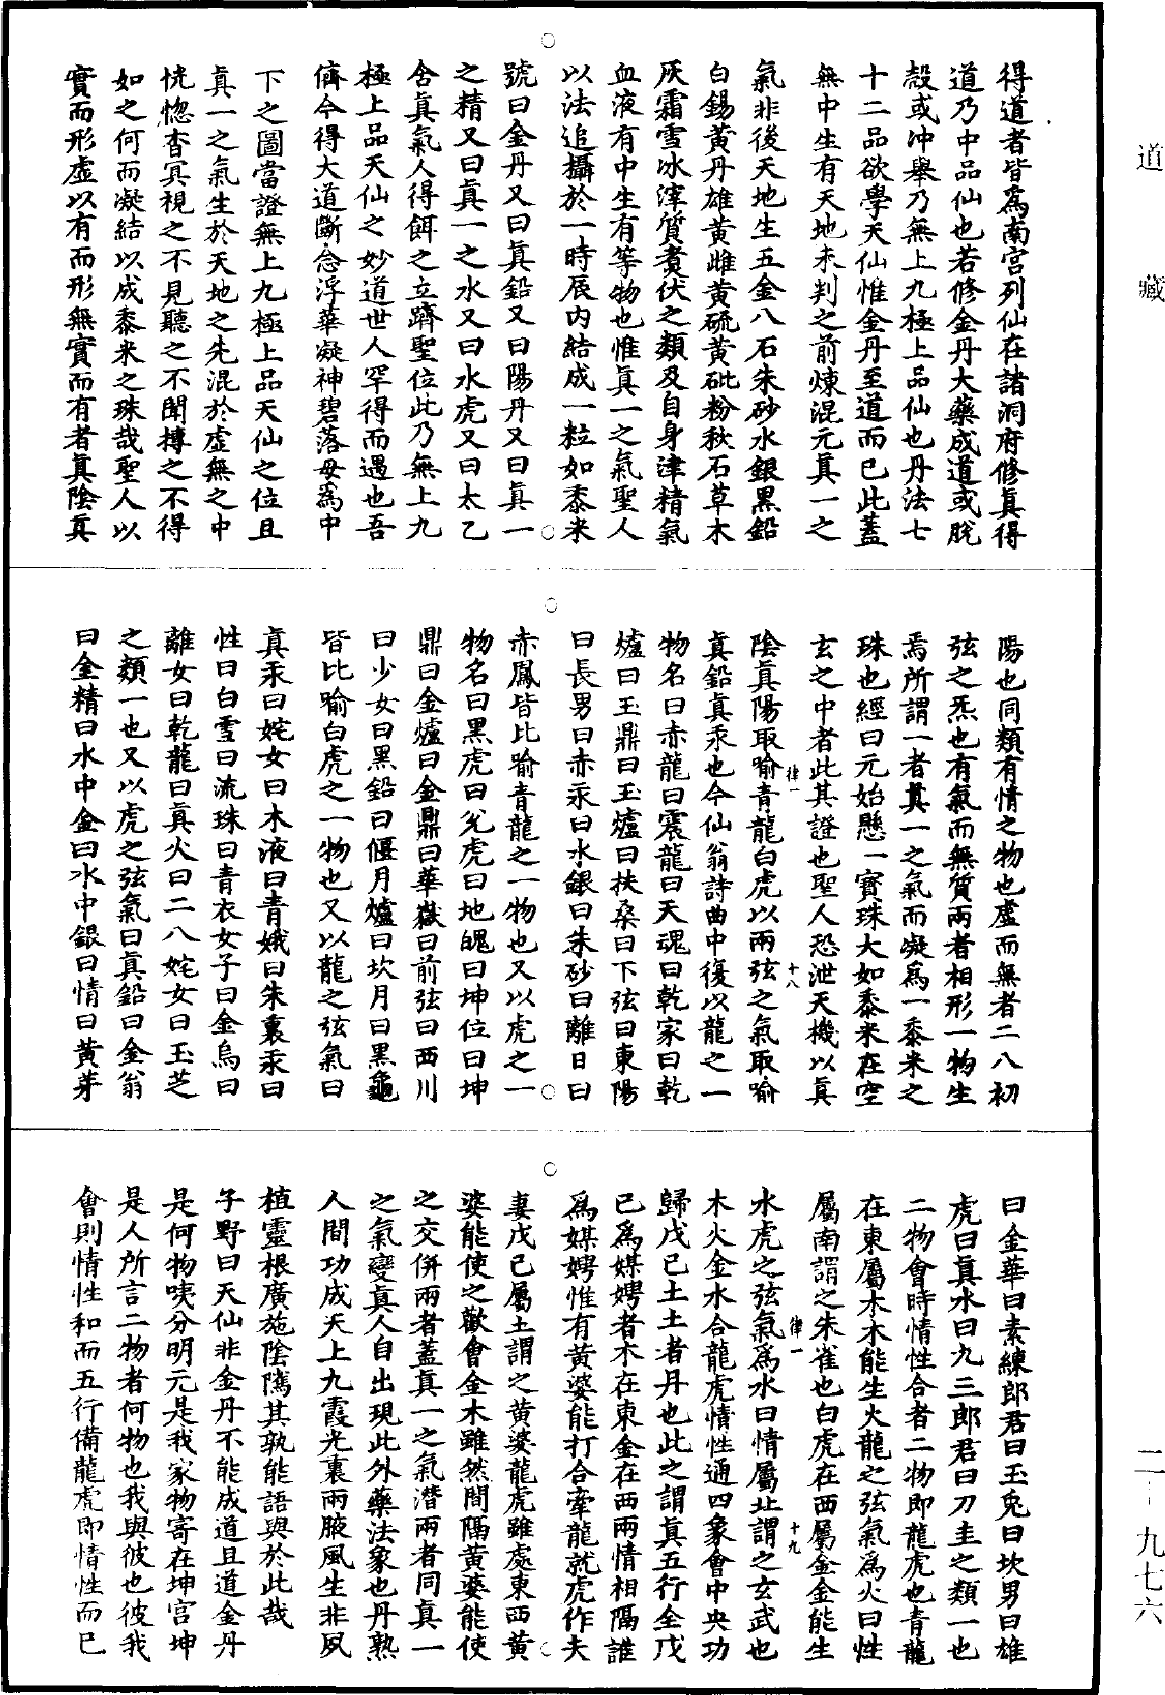 道藏
得道者皆爲南宮列仙在諸洞府修眞得
道乃中品仙也若修金丹大藥成道或脫
殼或冲舉乃無上九極上品仙也丹法七
十二品欲學天仙惟金丹至道而已此蓋
無中生有天地未判之前煉混元眞一之
氣非後天地生五金八石朱砂水銀黑鉛
白錫黃丹雄黃雌黃硫黃砒粉秋石草木
灰霜雪冰滓質煑伏之類及自身津精氣
血液有中生有等物也惟眞一之氣聖人
以法追攝於一時辰內結成一粒如黍米
號曰金丹又曰眞鉛又曰陽丹又曰眞一
之精又曰眞一之水又曰水虎又曰太乙
含眞氣人得餌之立躋聖位此乃無上九
極上品天仙之妙道世人罕得而遇也吾
儕今得大道斷念浮華凝神碧落毋爲中
下之圖當證無上九極上品天仙之位且
眞一之氣生於天地之先混於虛無之中
恍惚杳冥視之不見聽之不聞摶之不得
如之何而凝結以成黍米之珠哉聖人以
實而形虛以有而形無實而有者眞陰眞
陽也同類有情之物也虛而無者二八初
弦之炁也有氣而無質兩者相形一物生
焉所謂一者眞一之氣而凝爲一黍米之
珠也經曰元始懸一寶珠大如黍米在空
玄之中者此其證也聖人恐泄天機以眞
律一　十八
陰眞陽取喻青龍白虎以兩弦之氣取喻
眞鉛眞汞也今仙翁詩曲中復以龍之一
物名曰赤龍曰震龍曰天魂曰乾家曰乾
爐曰玉鼎曰玉爐曰扶桑曰下弦曰東陽
曰長男曰赤汞曰水銀曰朱砂曰離日曰
赤鳳皆比喻青龍之一物也又以虎之一
物名曰黑虎曰兌虎曰地魄曰坤位曰坤
鼎曰金爐曰金鼎曰華嶽曰前弦曰西川
曰少女曰黑鉛曰偃月爐曰坎月曰黑龜
皆比喻白虎之一物也又以龍之弦氣曰
眞汞曰姹女曰木液曰青娥曰朱裏汞曰
性曰白雪曰流珠曰青衣女子曰金烏曰
離女曰乾龍曰眞火曰二八姹女曰玉芝
之類一也又以虎之弦氣曰眞鉛曰金翁
曰金精曰水中金曰水中銀曰情曰黃芽
曰金華曰素練郎君曰玉兎曰坎男曰雄
虎曰眞水曰九三郎君曰刀圭之類一也
二物會時情性合者二物即龍虎也青龍
在東屬木木能生火龍之弦氣爲火曰性
屬南謂之朱雀也白虎在西屬金金能生
律一　十九
水虎之弦氣爲水曰情屬北謂之玄武也
木火金水合龍虎情性通四象會中央功
歸戊己土土者丹也此之謂眞五行全戊
己爲媒娉者木在東金在西兩情相隔誰
爲媒娉惟有黃婆能打合牽龍就虎作夫
妻戊己屬土謂之黃婆龍虎雖處東西黃
婆能使之歡會金木雖然間隔黃婆能使
之交併兩者蓋眞一之氣潛兩者同眞一
之氣變眞人自出現此外藥法象也丹熟
人間功成天上九霞光裏兩腋風生非夙
植靈根廣施陰隲其孰能語與於此哉
子野曰天仙非金丹不能成道且道金丹
是何物咦分明元是我家物寄在坤宮坤
是人所言二物者何物也我與彼也彼我
會則情性和而五行備龍虎即情性而已
二一九七六